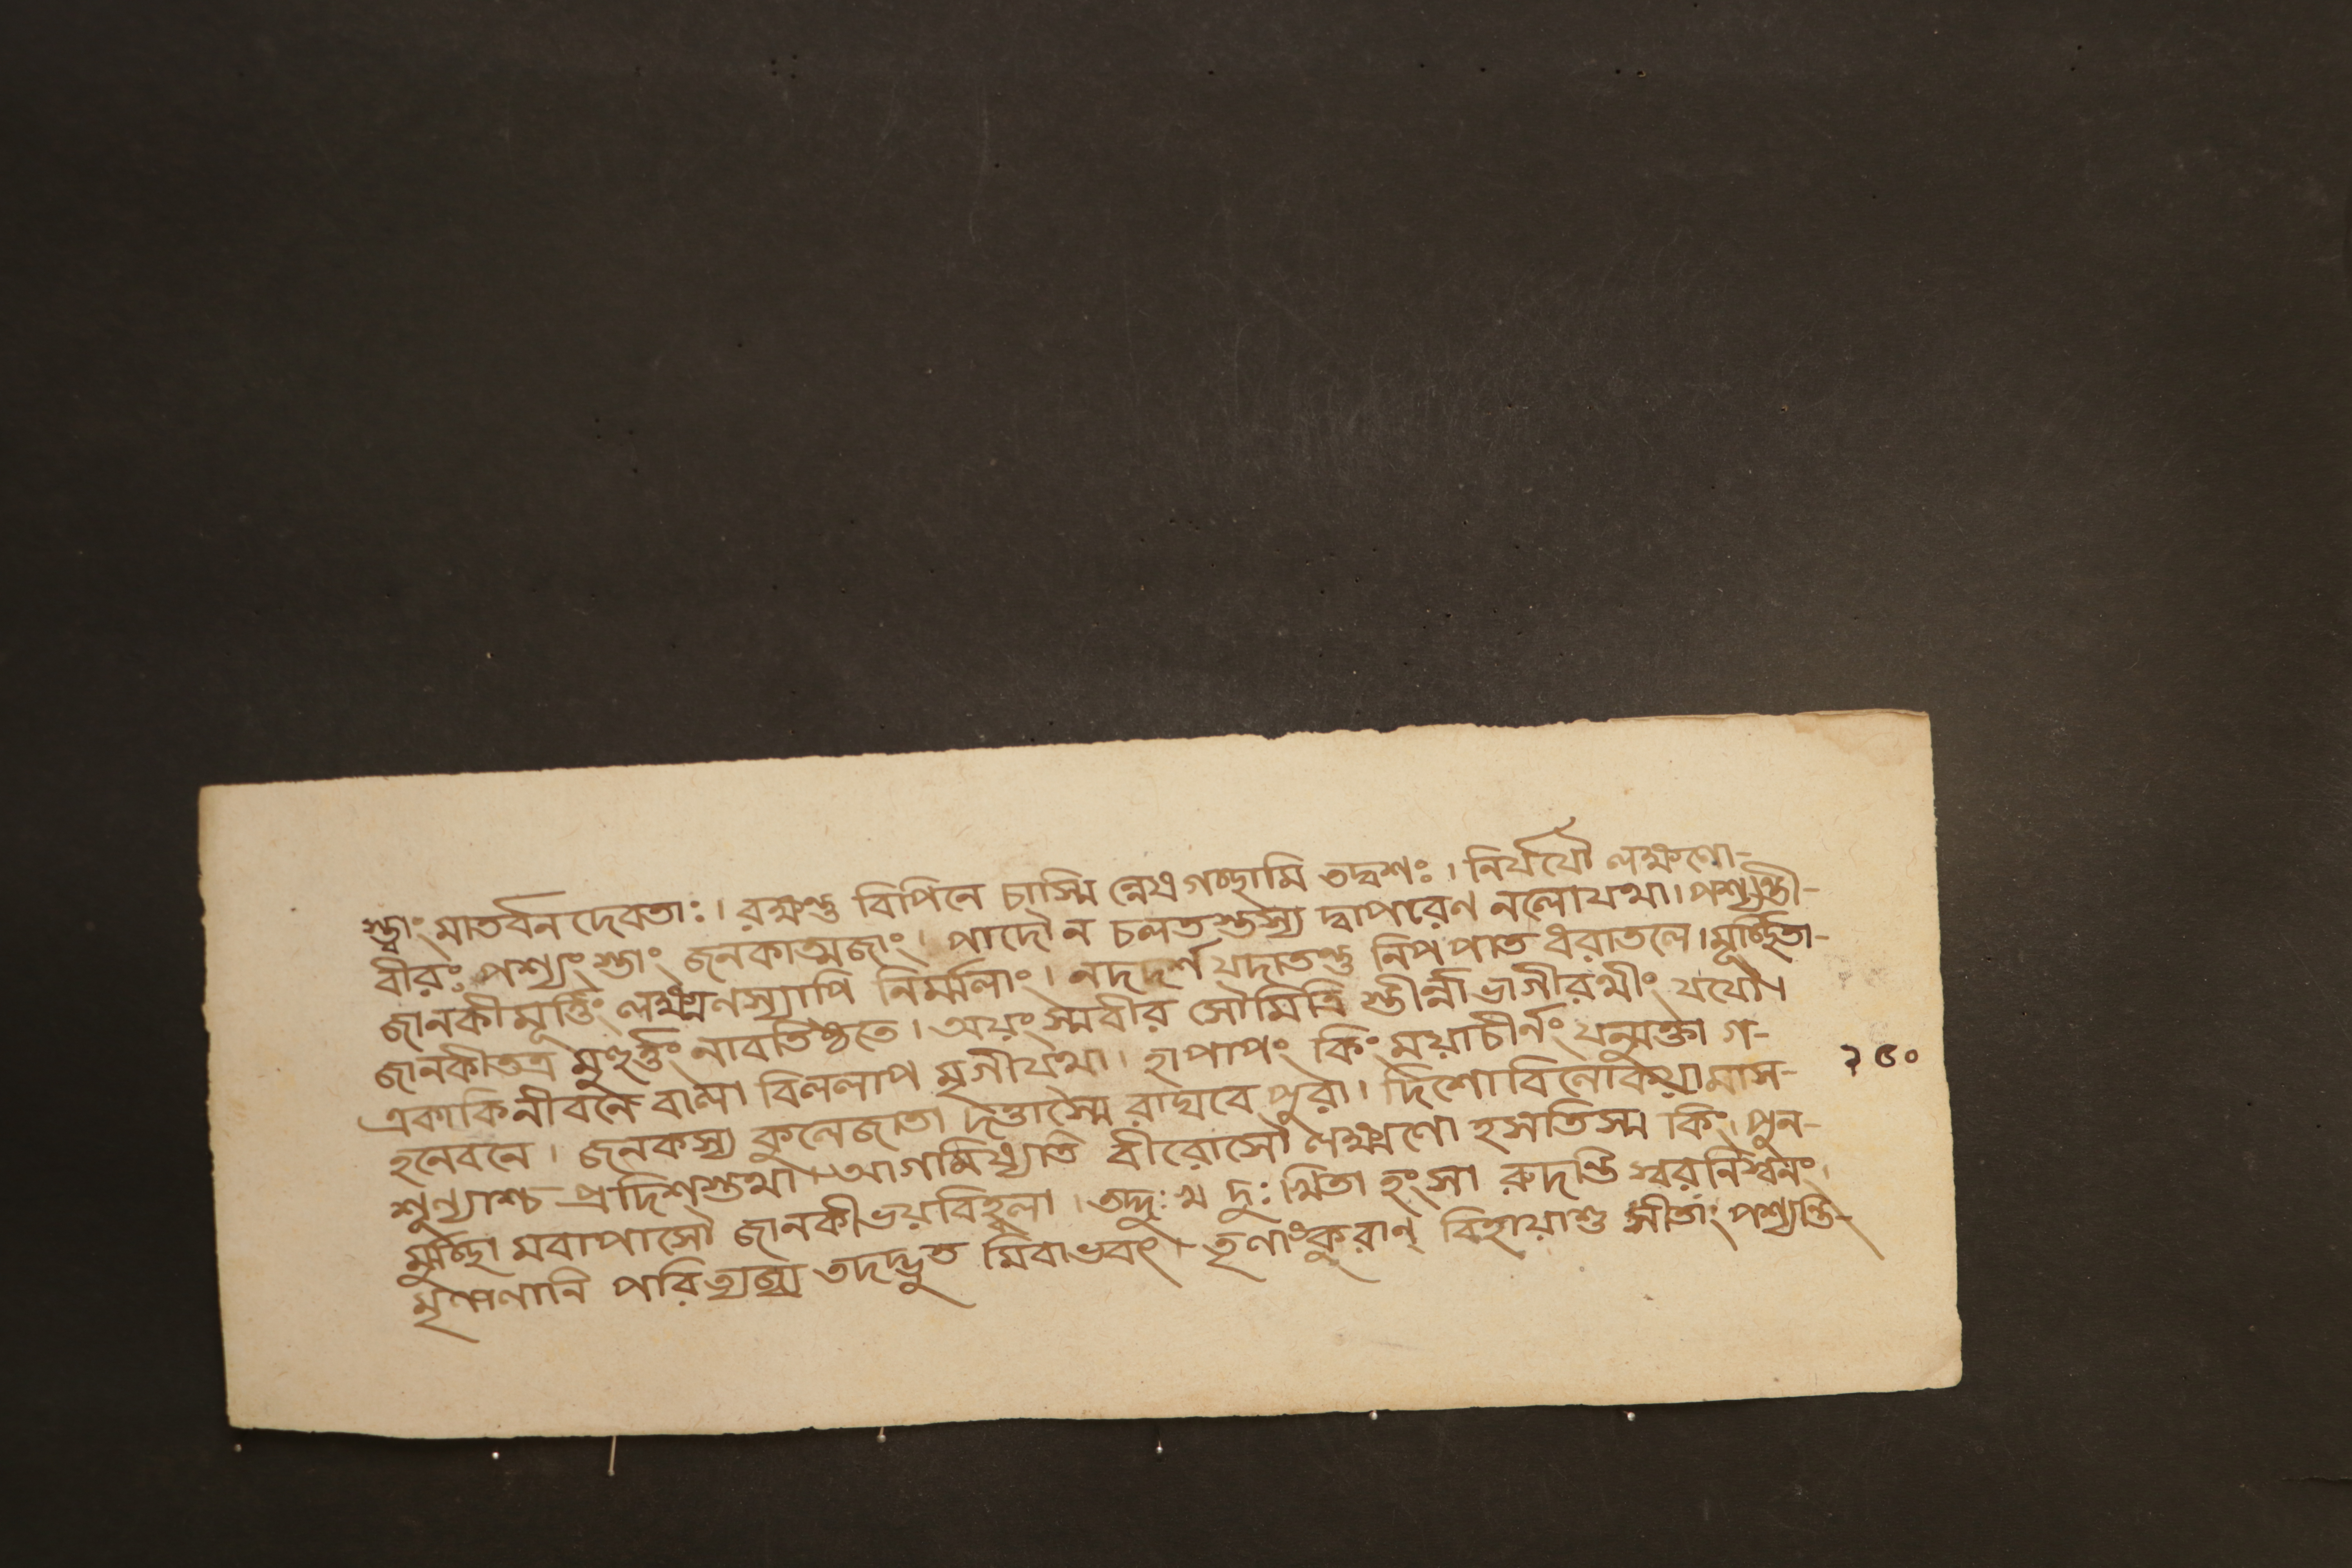 স্ত্বাং মাতর্বন দেবতাঃ। রক্ষন্তু বিপিনে চাস্মি ন্নেষ গচ্ছামি তদ্বশঃ। নির্যযৌ লক্ষণো-
বীরঃ পশ্যং স্তাং জনকাত্মজাং। পাদৌ ন চলতস্তস্য দ্বাপরেণ নলোযথা। পশ্যন্তী-
জানকীমূর্ত্তিং লক্ষ্মণস্যাপি নির্ম্মলাং। নদদর্শ যদাতন্তু নিপপাত ধরাতলে। মূর্চ্ছিতা-
জানকীতত্র মুহূর্ত্তং নাবতিষ্ঠতে। অয়ং স্মবীর সৌমিত্রি স্তীর্ন্না ভাগীরথীং যযৌ।
একাকিনীবনে বালা বিললাপ মৃগীযথা। হাপাপং কিং ময়াচীর্নং যন্মুক্তা গ-
হনেবনে। জনকস্য কুলেজাতা দত্তাস্মৈ রাঘবে পুরা। দিশোবিলোকয়ামাস-
শুন্যাশ্চ প্রদিশস্তথা। আগমিষ্যতি বীরোসৌ লক্ষ্মণো হসতিস্ম কিং। পুন-
র্মুর্চ্ছা মবাপাসৌ জানকীভয়বিহ্বলা। তদ্দুঃখ দুঃখিতা হংসা রুদন্তি স্বরনিস্বনং।
মৃণালানি পরিত্যজ্য তদদ্ভুত মিবাভবৎ। তৃণাংকুরাণ্ বিহায়াশু সীতাং পশ্যন্তি-
২৫০